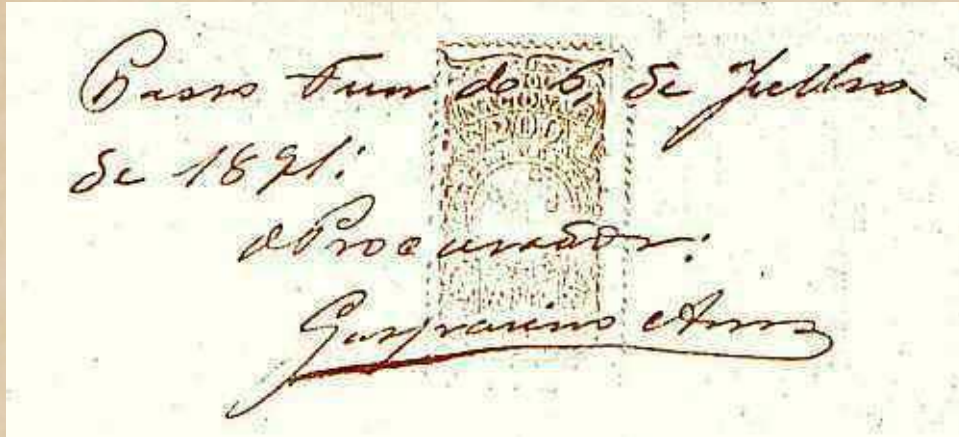 Passo Fundo 6, de Julho
de 1891.
O Procurador.
Gasparino
200